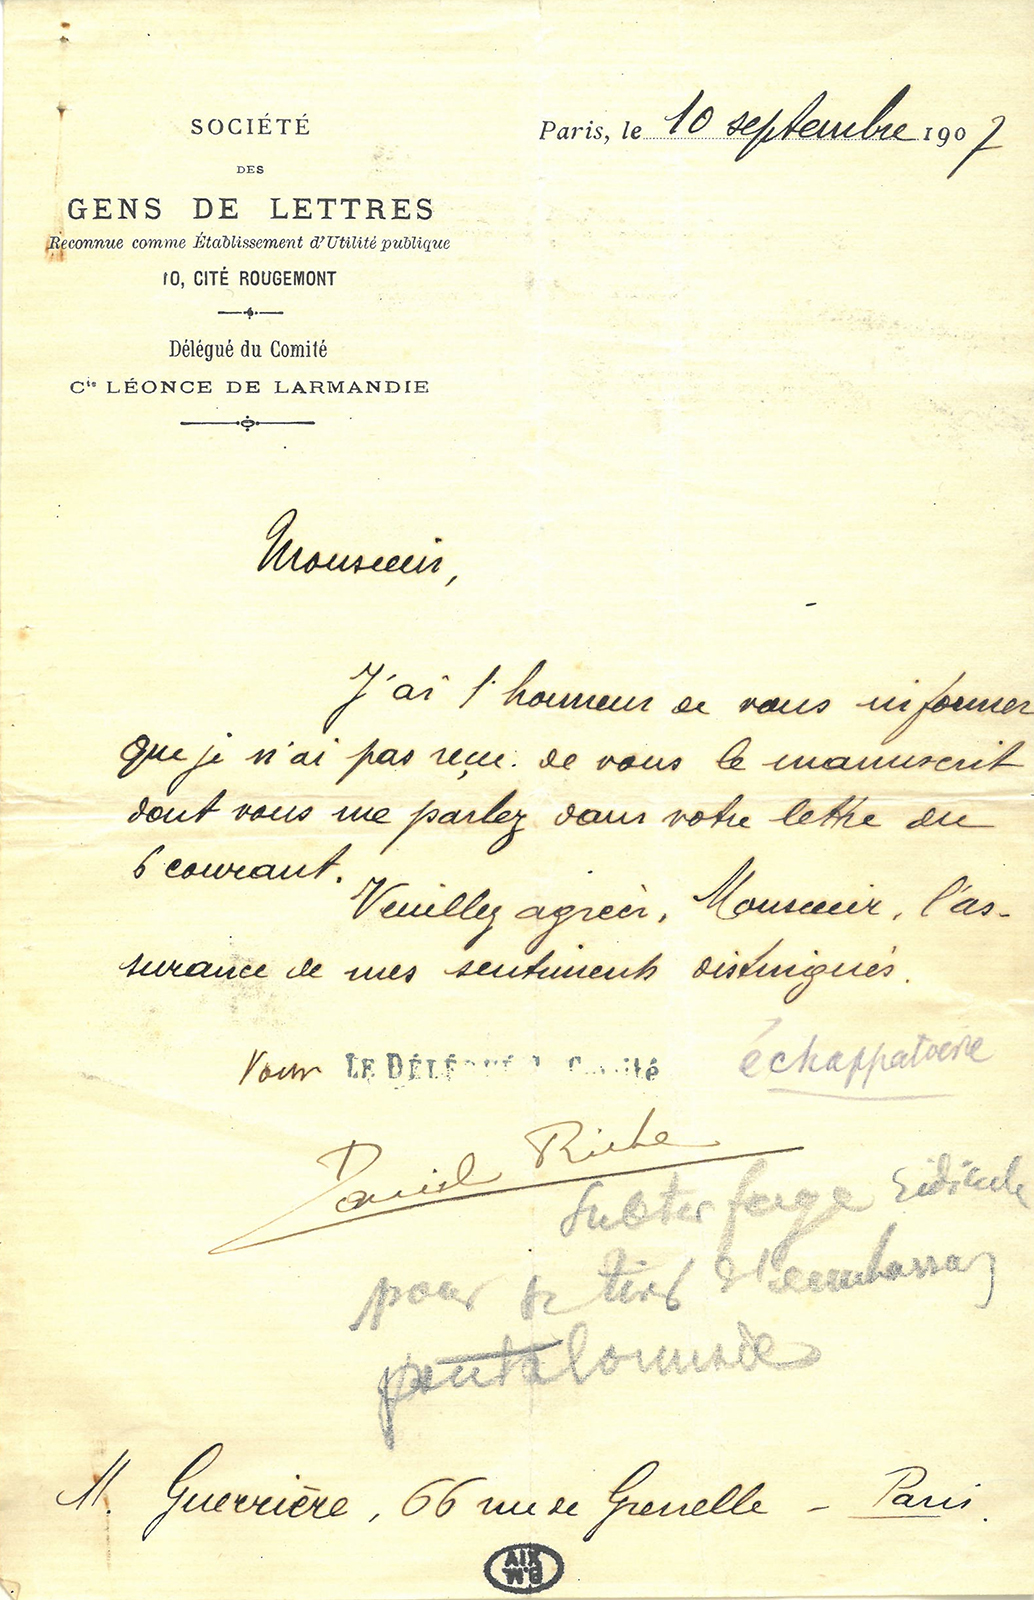 SOCIÉTÉ
DES
GENS DE LETTRES
Reconnue comme Établissement d'Utilité publique
10, CITÉ ROUGEMONT
Délégué du Comité
Cte LÉONCE DE LARMANDIE
Paris, le 10 septembre 1907
Monsieur,
J'ai l'honneur de vous informer
que je n'ai pas reçu de vous le manuscrit
dont vous me parlez dans votre lettre du
6 courant.
Veuillez agréer, Monsieur, l'as-
surance de mes sentiments distingués.
Pour LE DÉLÉGUÉ du Comité
échappatoire
Daniel Riche
Subterfuge ridicule
pour se tirer d'embarras
pantalonnade
M. Guerrière, 66 rue de Grenelle - Paris.
AIX
B.M.